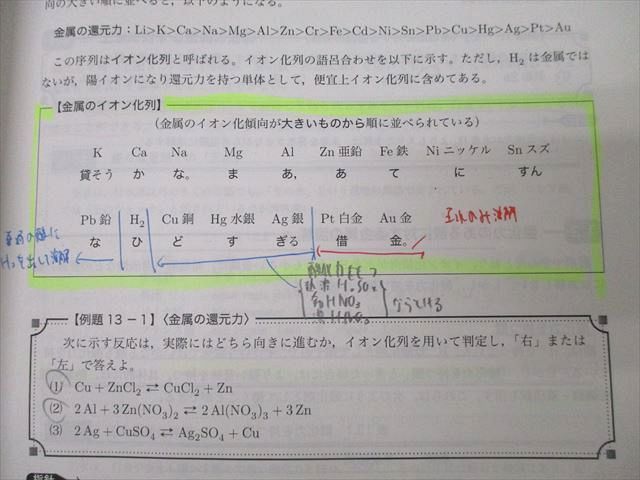 の大きい順に並べると，以下のようになる。
金属の還元力：Li>K>Ca>Na>Mg>Al>Zn>Cr>Fe>Cd>Ni>Sn>Pb>Cu>Hg>Ag>Pt>Au
この序列はイオン化列と呼ばれる。イオン化列の語呂合わせを以下に示す。ただし，H₂ は金属では
ないが，陽イオンになり還元力を持つ単体として，便宜上イオン化列に含めてある。
【金属のイオン化列】
（金属のイオン化傾向が大きいものから順に並べられている）
K Ca Na Mg Al Zn 亜鉛 Fe 鉄 Ni ニッケル Sn スズ
貸そう か な。 ま あ， あ て に すん
Pb 鉛 H₂ Cu 銅 Hg 水銀 Ag 銀 Pt 白金 Au 金
な ひ ど す ぎる 借 金。
王水のみ溶解
H₂を出して溶解
HNO₃
【例題 13 − 1】〈金属の還元力〉
次に示す反応は，実際にはどちら向きに進むか，イオン化列を用いて判定し，「右」または
「左」で答えよ。
(1) Cu + ZnCl₂ ⇄ CuCl₂ + Zn
(2) 2 Al + 3 Zn(NO₃)₂ ⇄ 2 Al(NO₃)₃ + 3 Zn
(3) 2 Ag + CuSO₄ ⇄ Ag₂SO₄ + Cu
指針